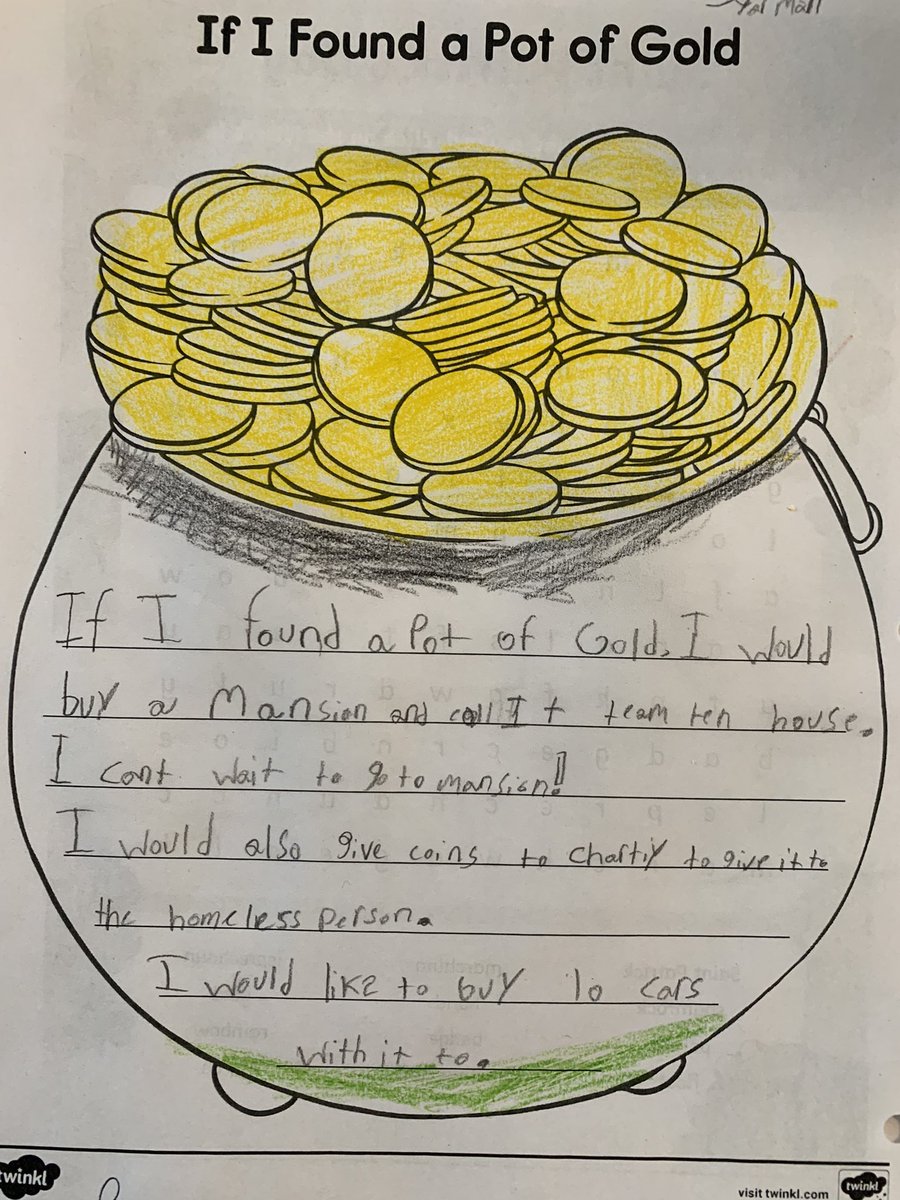 If I Found a Pot of Gold
If I found a Pot of Gold, I would
buy a Mansion and call It team ten house.
I cant wait to go to mansion!!
I would also give coins to Chartiy to give it to
the homeless person.
I would like to buy 10 cars
with it to.
twinkl
visit twinkl.com
twinkl